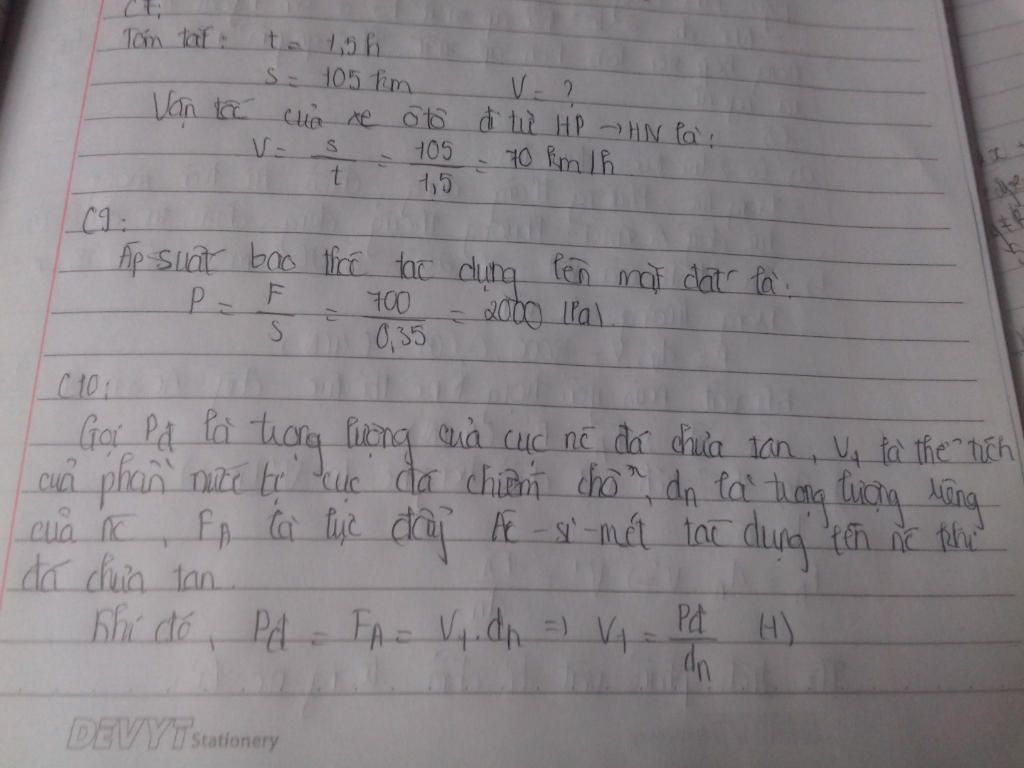 C7:
Tóm tắt: t = 1,5h
s = 105 km V = ?
Vận tốc của xe ôtô đi từ HP → HN là:
V = s/t = 105/1,5 = 70 km/h
C9:
Áp suất bao thóc tác dụng lên mặt đất là:
P = F/S = 700/0,35 = 2000 (Pa)
C10:
Gọi Pđ là trọng lượng của cục nc đá chưa tan, V1 là thể tích
của phần nước bị cục đá chiếm chỗ, dn là trọng lượng riêng
của nc, FA là lực đẩy Ác-si-mét tác dụng lên nc khi
đá chưa tan
Khi đó, Pđ = FA = V1.dn => V1 = Pđ/dn (1)
DEVYT Stationery